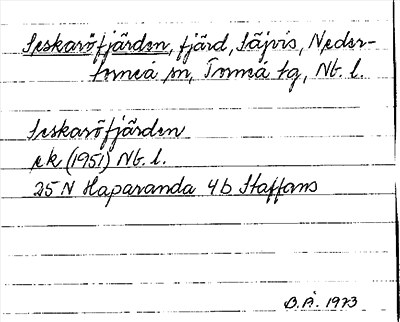 Seskaröfjärden, fjärd, Säjvis, Neder-
torneå sn, Torneå tg, Nb. l.
Seskaröfjärden
ek (1951) Nb. l.
25 N Haparanda 4b Staffans
B.Å. 1973